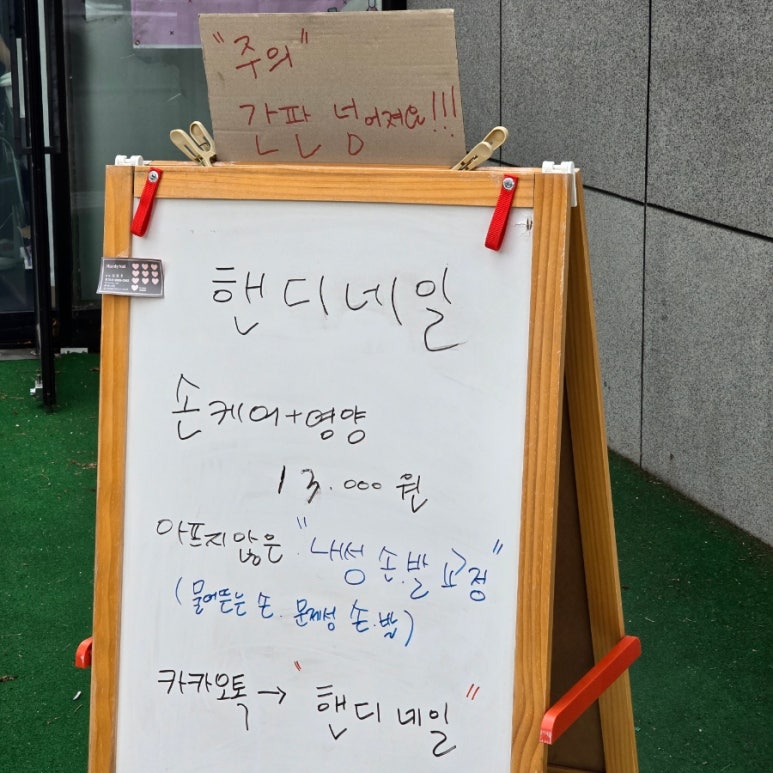 "주의"
간판 넘어져요!!!
핸디네일
손케어+영양
13.000원
아프지않은 "내성 손.발 교정"
(물어뜯는 손. 문제성 손.발)
카카오톡 → "핸디네일"